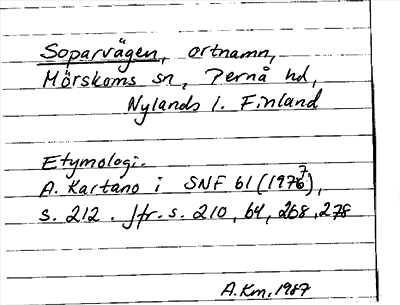 Soparvägen, ortnamn,
Mörskoms sn, Pernå hd,
Nylands l. Finland
Etymologi.
A. Kartano i SNF 61 (1977),
s. 212. Jfr. s. 210, 64, 268, 278
A.Km, 1987